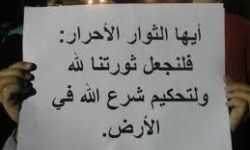 أيها الثوار الأحرار:
فلنجعل ثورتنا لله
ولتحكيم شرع الله في
الأرض.